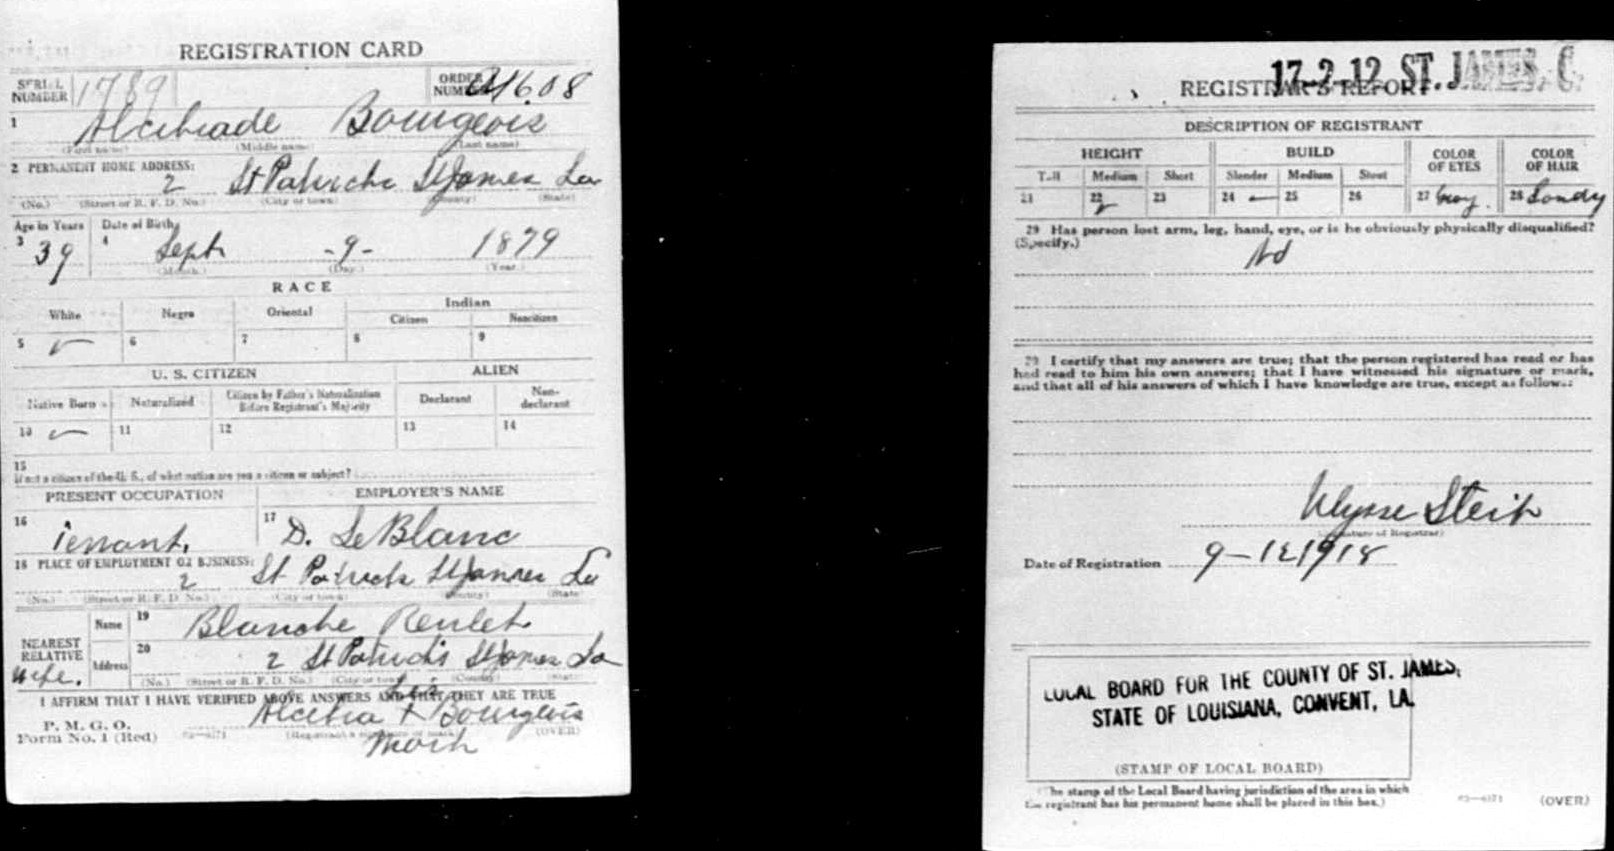 REGISTRATION CARD
SERIAL NUMBER 1789 ORDER NUMBER A1608
1 Alcibiade Bourgeois
(First name) (Middle name) (Last name)
2 PERMANENT HOME ADDRESS:
2 St Patricks St James La
(No.) (Street or R. F. D. No.) (City or town) (County) (State)
Age in Years Date of Birth
3 39 4 Sept -9- 1879
(Month.) (Day.) (Year.)
RACE
White Negro Oriental Indian
Citizen Noncitizen
5 ✓ 6 7 8 9
U. S. CITIZEN ALIEN
Native Born Naturalized Citizen by Father's Naturalization Before Registrant's Majority Declarant Non-declarant
10 ✓ 11 12 13 14
15
If not a citizen of the U. S., of what nation are you a citizen or subject?
PRESENT OCCUPATION EMPLOYER'S NAME
16 Tenant. 17 D. LeBlanc
18 PLACE OF EMPLOYMENT OR BUSINESS:
2 St Patricks St James La
(No.) (Street or R. F. D. No.) (City or town) (County) (State)
NEAREST RELATIVE Wife.
Name 19 Blanche
Address 20 2 St Patricks St James La
(No.) (Street or R. F. D. No.) (City or town) (County) (State)
I AFFIRM THAT I HAVE VERIFIED ABOVE ANSWERS AND THAT THEY ARE TRUE
his
Alcibia + Bourgeois
mark
P. M. G. O.
Form No. 1 (Red) (Registrant's signature or mark) (OVER)
17-2-12 ST. JAMES, C.
REGISTRAR'S REPORT
DESCRIPTION OF REGISTRANT
HEIGHT BUILD COLOR OF EYES COLOR OF HAIR
Tall Medium Short Slender Medium Stout
21 22 ✓ 23 24 25 26 27 Gray. 28 Sandy
29 Has person lost arm, leg, hand, eye, or is he obviously physically disqualified?
(Specify.)
No
I certify that my answers are true; that the person registered has read or has
had read to him his own answers; that I have witnessed his signature or mark,
and that all of his answers of which I have knowledge are true, except as follows:
Ulysse
(Signature of Registrar)
Date of Registration 9-12 1918
LOCAL BOARD FOR THE COUNTY OF ST. JAMES,
STATE OF LOUISIANA, CONVENT, LA.
(STAMP OF LOCAL BOARD)
The stamp of the Local Board having jurisdiction of the area in which
the registrant has his permanent home shall be placed in this box.)
(OVER)